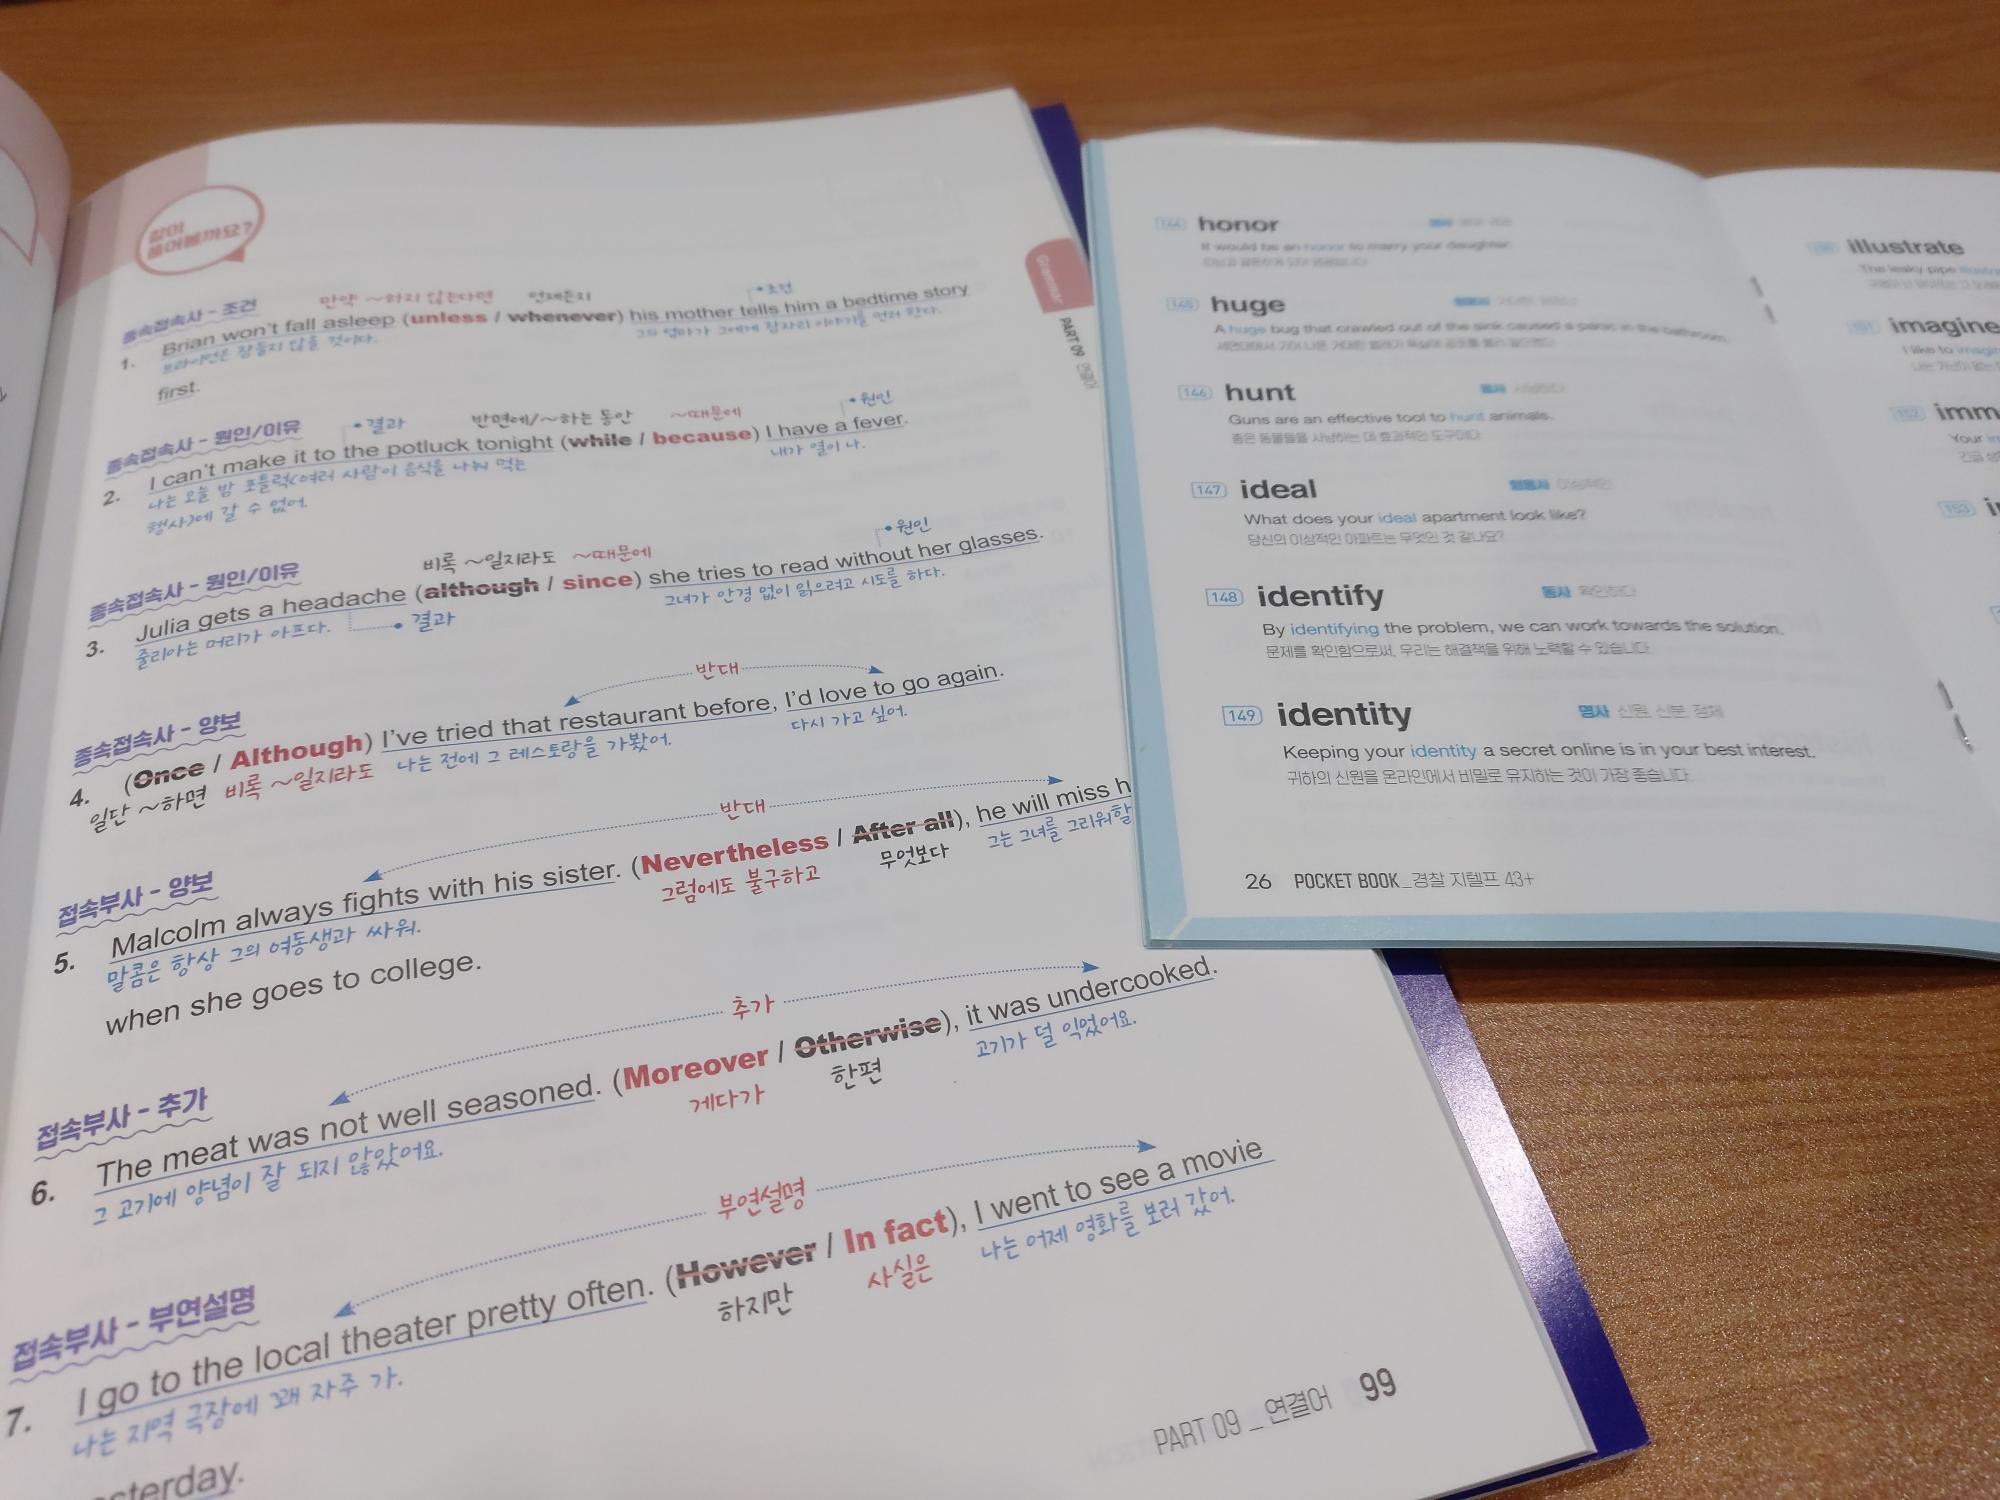 같이
풀어볼까요?
종속접속사 - 조건
만약 ~하지 않는다면 언제든지 •조건
1. Brian won't fall asleep (unless / whenever) his mother tells him a bedtime story
브라이언은 잠들지 않을 것이다. 그의 엄마가 그에게 잠자리 이야기를 먼저 한다.
first.
종속접속사 - 원인/이유
•결과 반면에/~하는 동안 ~때문에 •원인
2. I can't make it to the potluck tonight (while / because) I have a fever.
나는 오늘 밤 포틀럭(여러 사람이 음식을 나눠 먹는 내가 열이 나.
행사)에 갈 수 없어.
종속접속사 - 원인/이유
비록 ~일지라도 ~때문에 •원인
3. Julia gets a headache (although / since) she tries to read without her glasses.
줄리아는 머리가 아프다. •결과 그녀가 안경 없이 읽으려고 시도를 하다.
종속접속사 - 양보
반대
4. (Once / Although) I've tried that restaurant before, I'd love to go again.
일단 ~하면 비록 ~일지라도 나는 전에 그 레스토랑을 가봤어. 다시 가고 싶어.
접속부사 - 양보
반대
5. Malcolm always fights with his sister. (Nevertheless / After all), he will miss h
말콤은 항상 그의 여동생과 싸워. 그럼에도 불구하고 무엇보다 그는 그녀를 그리워할
when she goes to college.
접속부사 - 추가
추가
6. The meat was not well seasoned. (Moreover / Otherwise), it was undercooked.
그 고기에 양념이 잘 되지 않았어요. 게다가 한편 고기가 덜 익었어요.
접속부사 - 부연설명
부연설명
7. I go to the local theater pretty often. (However / In fact), I went to see a movie
나는 지역 극장에 꽤 자주 가. 하지만 사실은 나는 어제 영화를 보러 갔어.
sterday.
PART 09 _ 연결어 99
Grammar
PART 09 연결어
144 honor
It would be an honor to marry your daughter.
145 huge
A huge bug that crawled out of the sink caused a panic in the bathroom.
146 hunt 동사 사냥하다
Guns are an effective tool to hunt animals.
총은 동물들을 사냥하는 데 효과적인 도구이다.
147 ideal 형용사 이상적인
What does your ideal apartment look like?
당신의 이상적인 아파트는 무엇인 것 같나요?
148 identify 동사 확인하다
By identifying the problem, we can work towards the solution.
문제를 확인함으로써, 우리는 해결책을 위해 노력할 수 있습니다.
149 identity 명사 신원, 신분, 정체
Keeping your identity a secret online is in your best interest.
귀하의 신원을 온라인에서 비밀로 유지하는 것이 가장 좋습니다.
26 POCKET BOOK_경찰 지텔프 43+
illustrate
The leaky pipe
151 imagine
I like to imagin
152 imm
Your
153 i